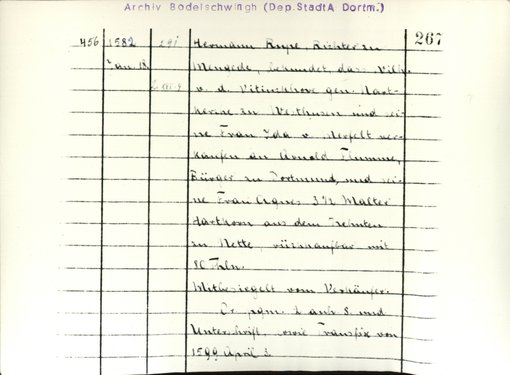 Archiv Bodelschwingh (Dep. StadtA Dortm.)
267
456 1582 291 Hermann Rupe, Richter zu
Jan. 18 Mengede, bekundet, dass Wilh.
v. d. Vitinckhove gen. Nort-
kerke zu Westhusen und sei-
ne Frau Ida v. Nerfelt ver-
kaufen an Arnold Flumme,
Bürger zu Dortmund, und sei-
ne Frau Agnes 3 1/2 Malter
Hartkorn aus dem Zehnten
zu Nette, rückkaufbar mit
80 Thlr.
Mitbesiegelt vom Verkäufer.
Or. pgm. 2 anh. S. und
Unterschrift, sowie Transfix von
1599 April 3.